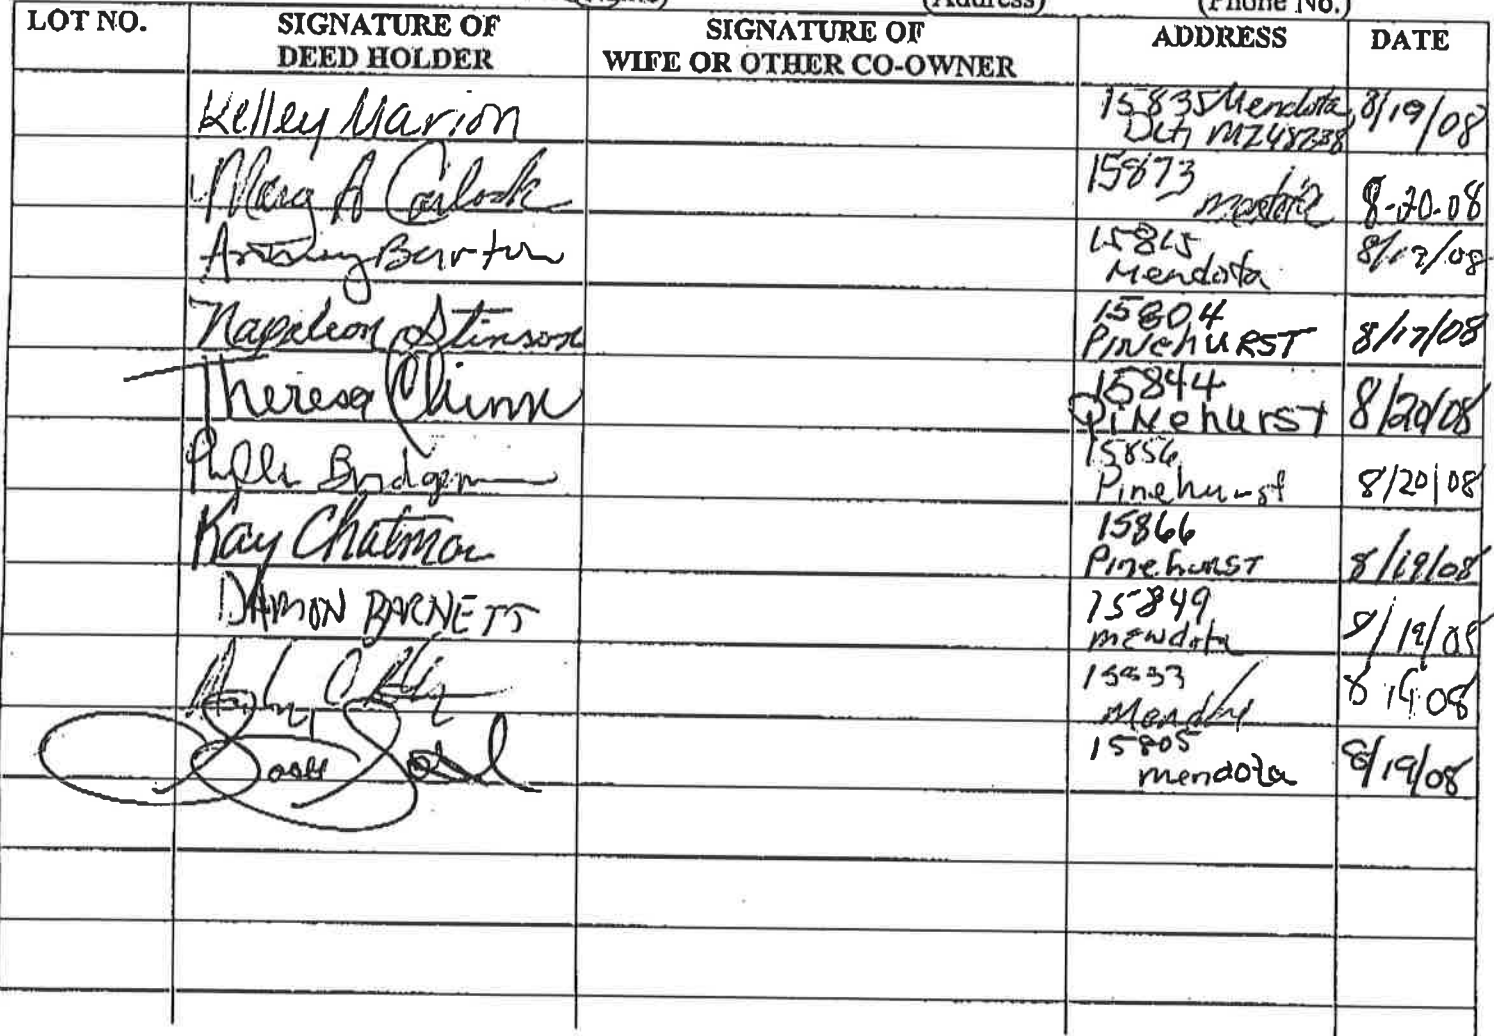 (Address) (Phone No.)
LOT NO. SIGNATURE OF DEED HOLDER SIGNATURE OF WIFE OR OTHER CO-OWNER ADDRESS DATE
Kelley Marion 15835 Mendota, Det, MI 48238 8/19/08
Mary A 15873 8-20-08
Anthony Burton 15815 Mendota 8/19/08
Napoleon Stinson 15804 PINehURST 8/17/08
Theresa Chinn 15844 PiNehurST 8/20/08
Bridgem 15856 Pinehurst 8/20/08
Kay Chatmon 15866 PinehursT 8/19/08
DAMON BARNETT 15849 mendota 8/19/08
Scott 15805 mendota 8/19/08